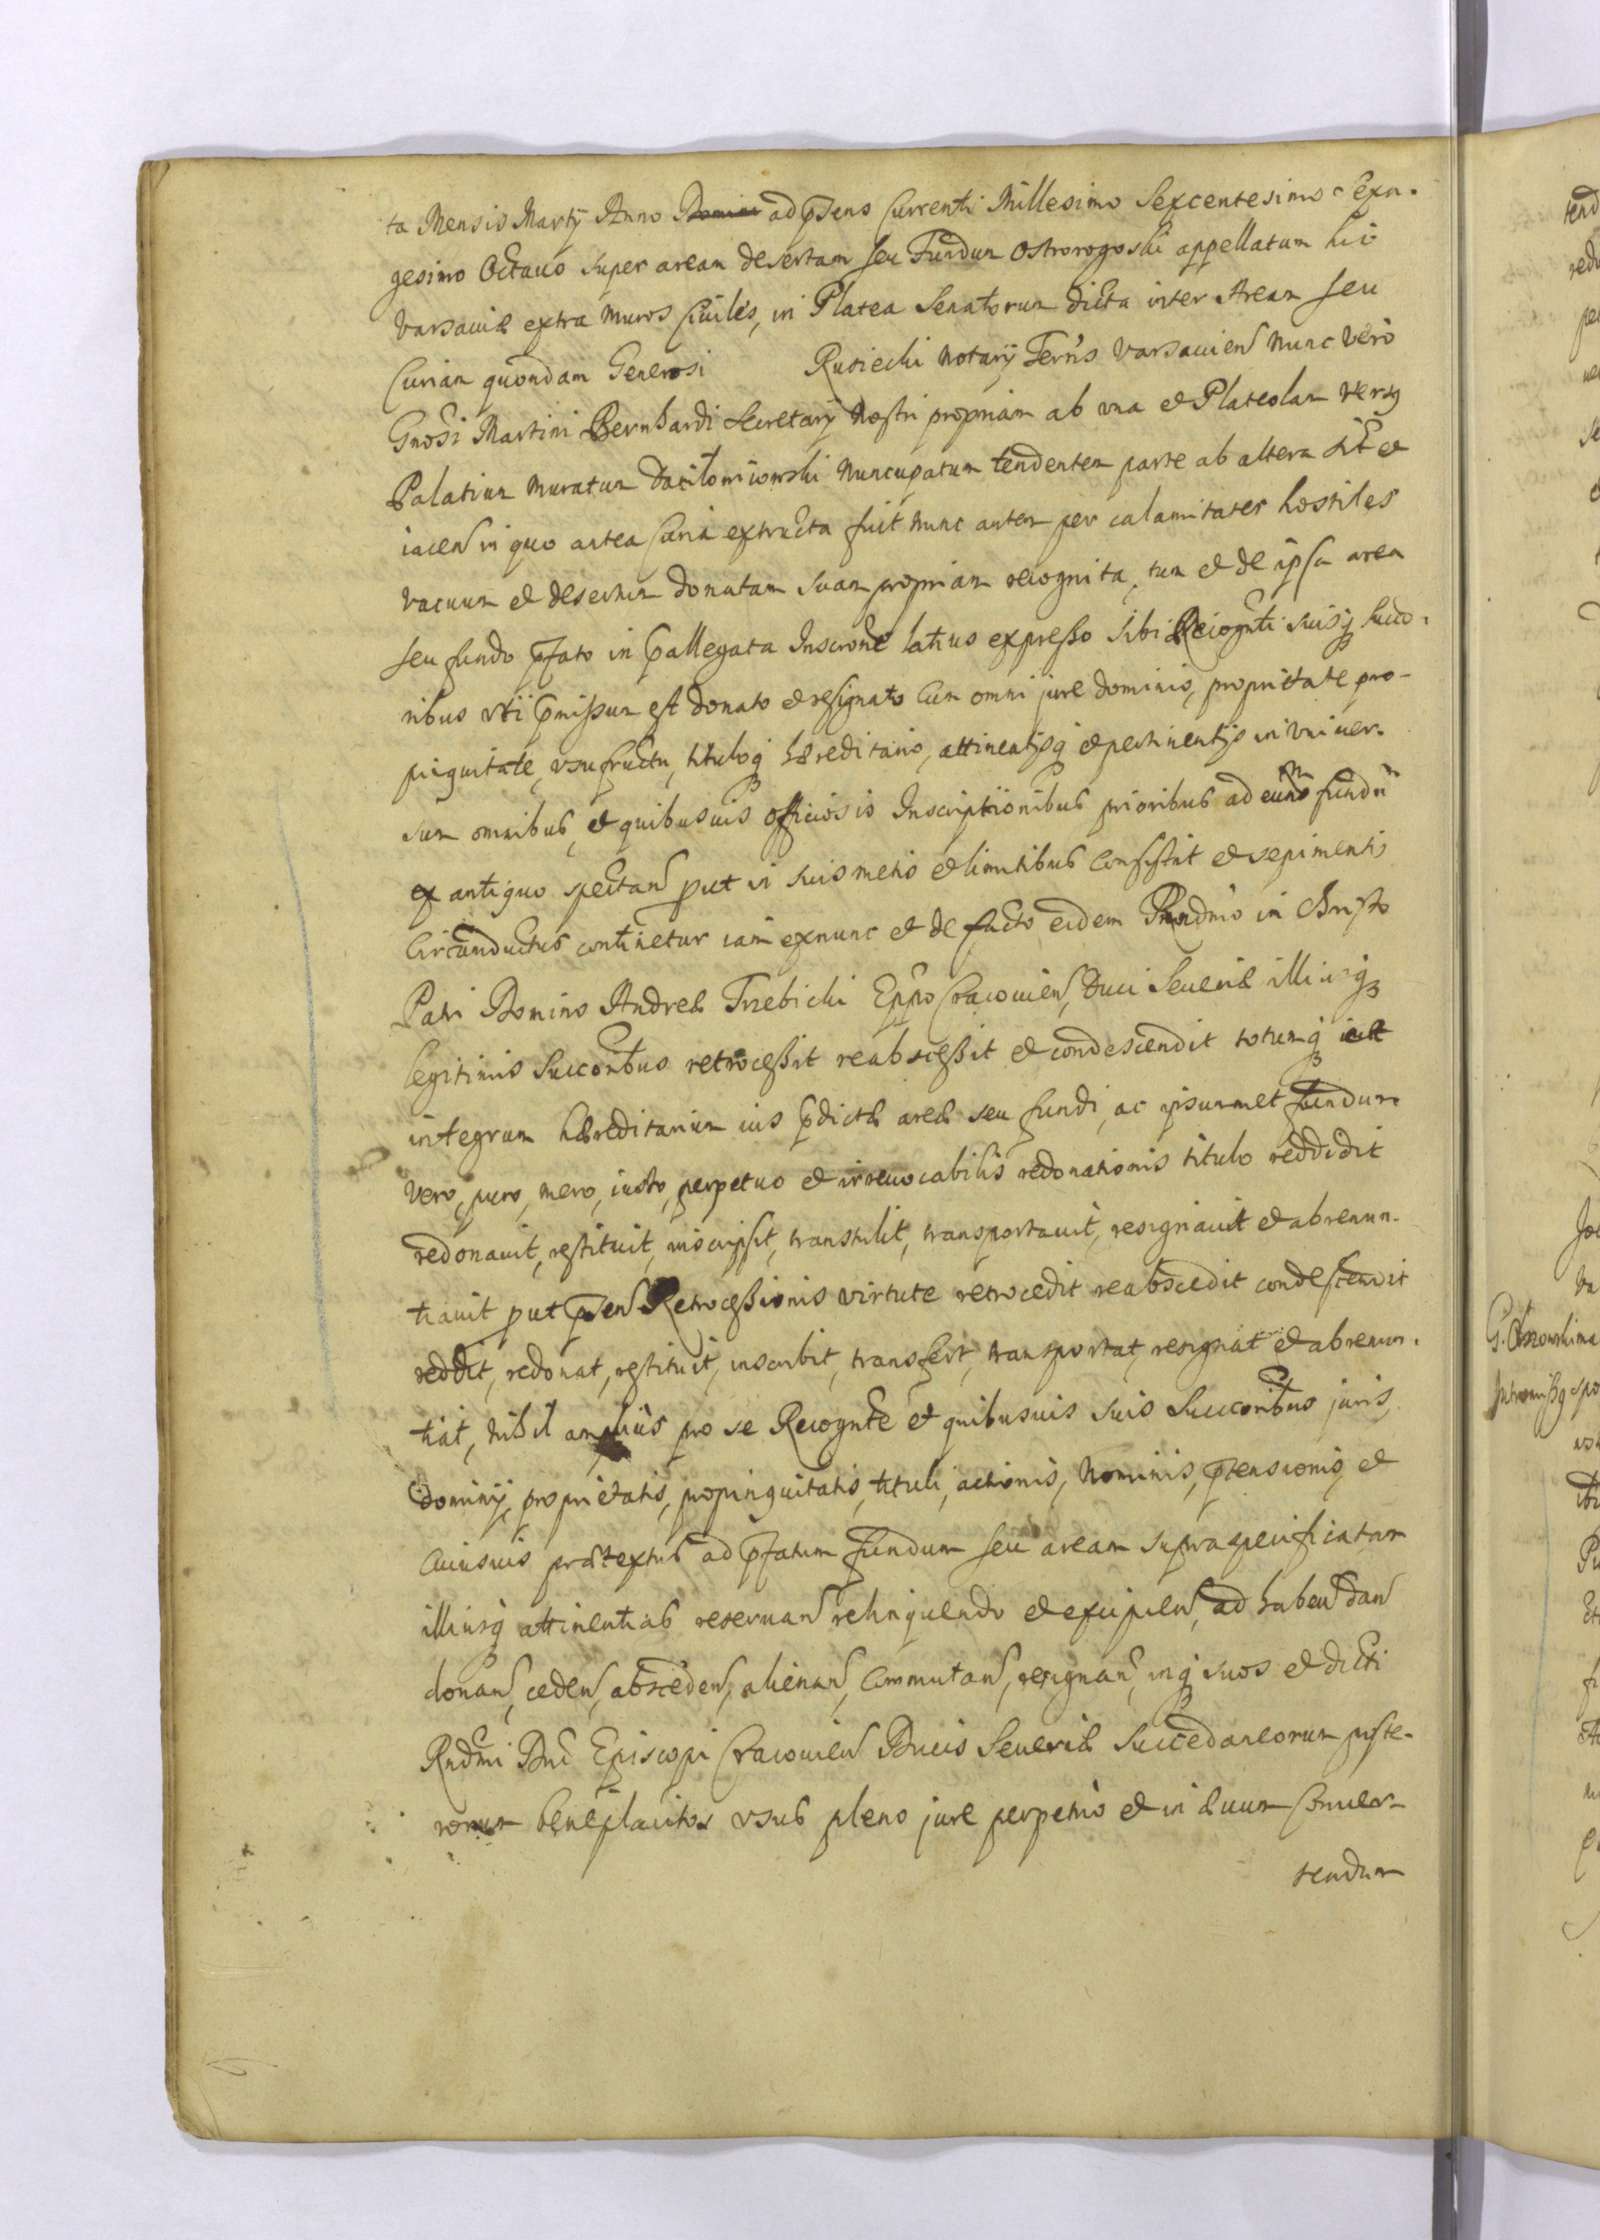 ta Mensis Martij Anno Domini ad p̃sens Currenti Millesimo Sexcentesimo Sexa-
gesimo Octauo super aream desertam seu Fundum Ostrorogoski appellatum hic
Varsauiæ extra muros Ciuiles, in Platea Senatorum dicta inter Aream seu
Curiam quondam Generosi Rusiecki Notarij Terr̃is Varsauien̄ nunc vero
Gnosi Martini Bernhardi Secretarij Nostri propriam ab vna et Plateolam versꝫ
Palatium muratum Daniłowiczowski nuncupatum tendentem parte ab altera sit̄ et
iacen̄ in quo antea Curia extructa fuit nunc autem per calamitates hostiles
vacuum et desertum donatam suam propriam recognita, tum et de ipsa area
seu fundo p̃fato in p̃allegata Inscr̃one latius expresso sibi Recogn̄ti suisq̃ succo-
ribus vti p̃missum est donato et resignato Cum omni jure dominio, proprietate pro-
pinquitate, vsufructu, tituloq̃ hæreditario, attinentijsq̃ et pertinentijs in vniuer-
sum omnibus, et quibusuis officiosis Inscriptionibus prioribus ad eum fundū
ex antiquo spectan̄ prout in suis metis et limitibus consistit et sepimentis
Circumductus continetur iam exnunc et de facto eidem Rndmo in Christo
Patri Domino Andreæ Trzebicki Ep̃po Cracouien̄, Duci Seueriæ illiusq̃
legitimis Succoribus retrocessit reabscessit et condescendit totumq̃ et
integrum hæreditarium ius p̃dictæ areæ seu fundi, ac ipsummet fundum
vero, puro, mero, iusto, perpetuo et irreuocabilis redonationis titulo reddidit
redonauit, restituit, inscripsit, transtulit, transportauit, resignauit et abrenun-
tiauit prout p̃sen̄ Retrocessionis virtute retrocedit reabscedit condescendit
reddit, redonat, restituit, inscribit, transfert, transportat, resignat et abrenun-
tiat, nihil amplius pro se Recogn̄te et quibusuis suis Succoribus juris,
dominij, proprietatis, propinquitatis, tituli, actionis, Nominis, p̃tensionis, et
cuiusuis prætextus ad p̃fatum fundum seu aream supraspecificatam
illiusq̃ attinentias reseruan̄ relinquendo et excipien̄, ad haben̄ dan̄
donan̄, ceden̄, absceden̄, alienan̄, Commutan̄, resignan̄, inq̃ suos et dicti
Rndmi Dn̄i Episcopi Cracouien̄ Ducis Seueriæ Succedaneorum poste-
rorum beneplacitos vsus pleno jure perpetuo et in æuum Conuer-
tendum